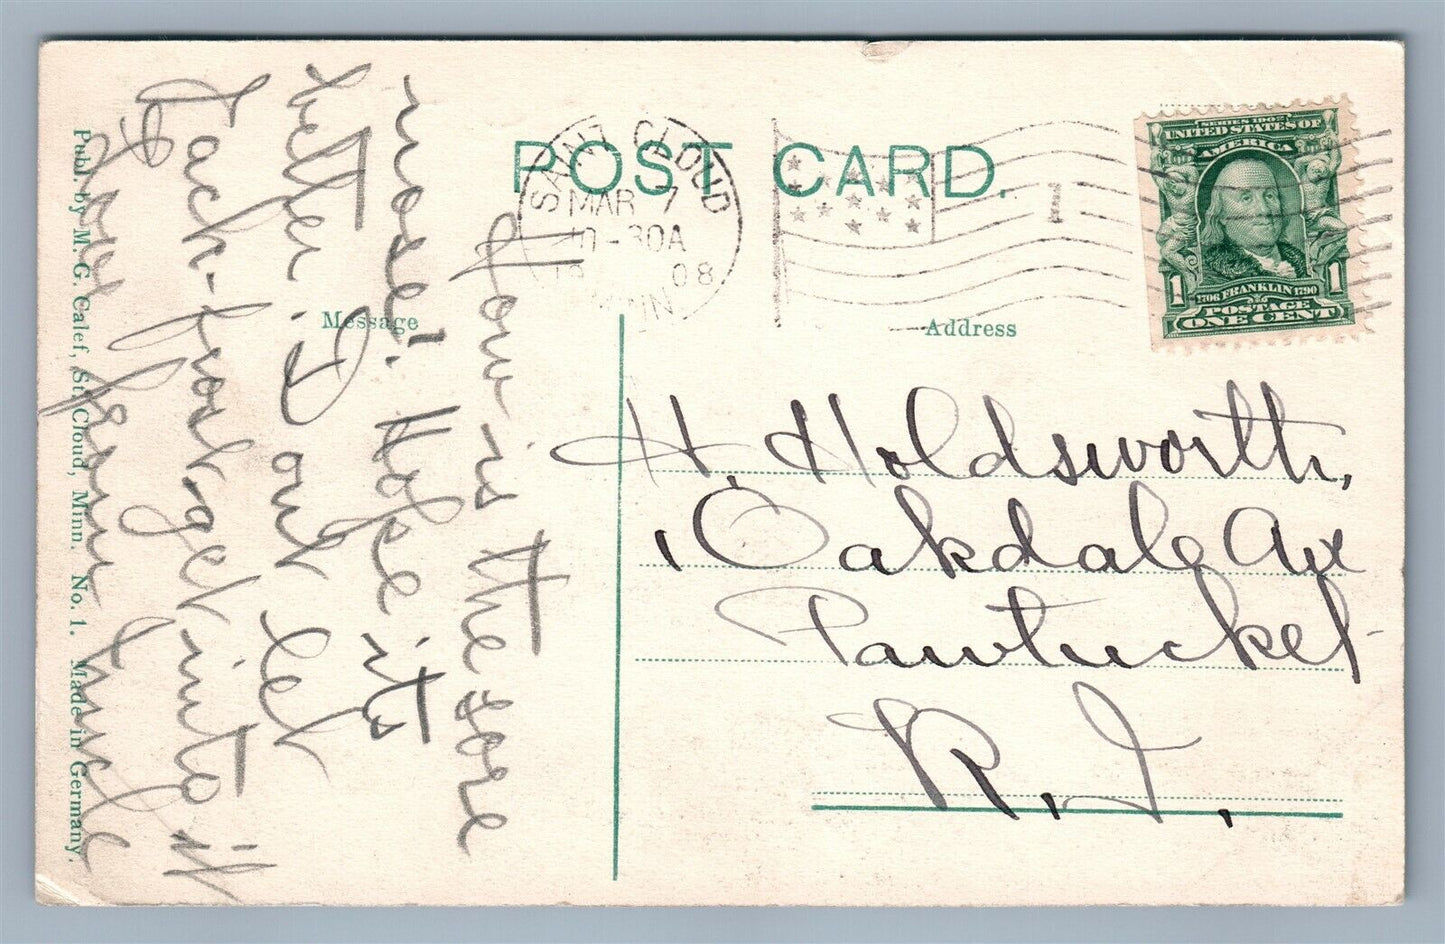 POST CARD.
SAINT CLOUD
MAR 7
10-30A
08
MINN
1
SERIES 1902
UNITED STATES OF
AMERICA
1706 FRANKLIN 1790
POSTAGE
1 ONE CENT 1
Message
Address
How is the sore
nose! Hope its
better. Dont let
Jack-frost get into it
Your from
H. Holdsworth,
Oakdale Av
Pawtucket
R.I.
Publ. by M. G. Calef, St. Cloud, Minn. No. 1. Made in Germany.